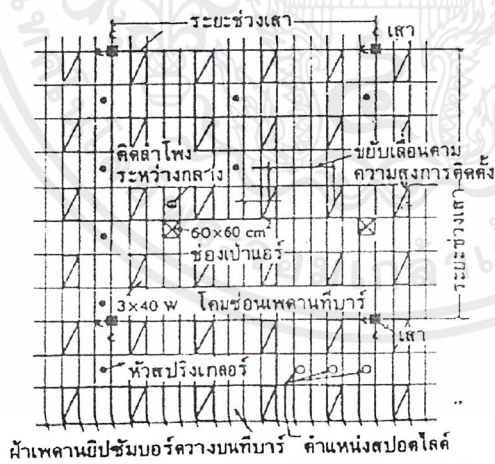 ระยะช่วงเสา
เสา
ติดลำโพง
ระหว่างกลาง
ขยับเลื่อนตาม
ความสูงการติดตั้ง
60x60 cm²
ช่องเป่าแอร์
ระยะช่วงเสา
3x40 W โคมซ่อนเพดานทีบาร์
เสา
หัวสปริงเกลอร์
ฝ้าเพดานยิปซัมบอร์ดวางบนทีบาร์ ตำแหน่งสปอตไลต์